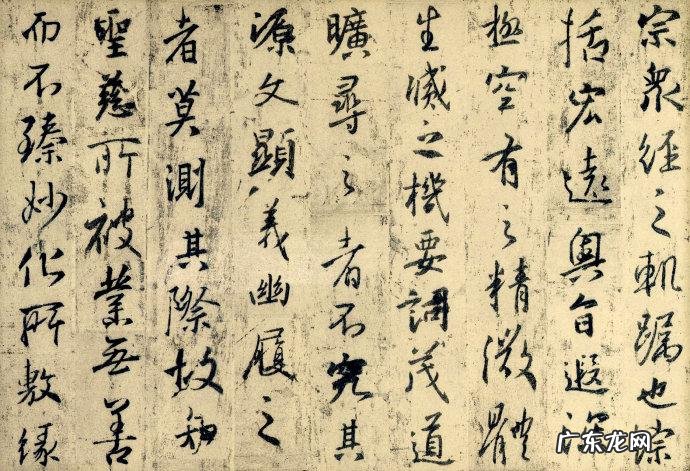 宗眾經之軌躅也綜
括宏遠奧旨遐深
極空有之精微體
生滅之機要詞茂道
曠尋之者不究其
源文顯義幽履之
者莫測其際故知
聖慈所被業無善
而不臻妙化所敷緣
广东龙网